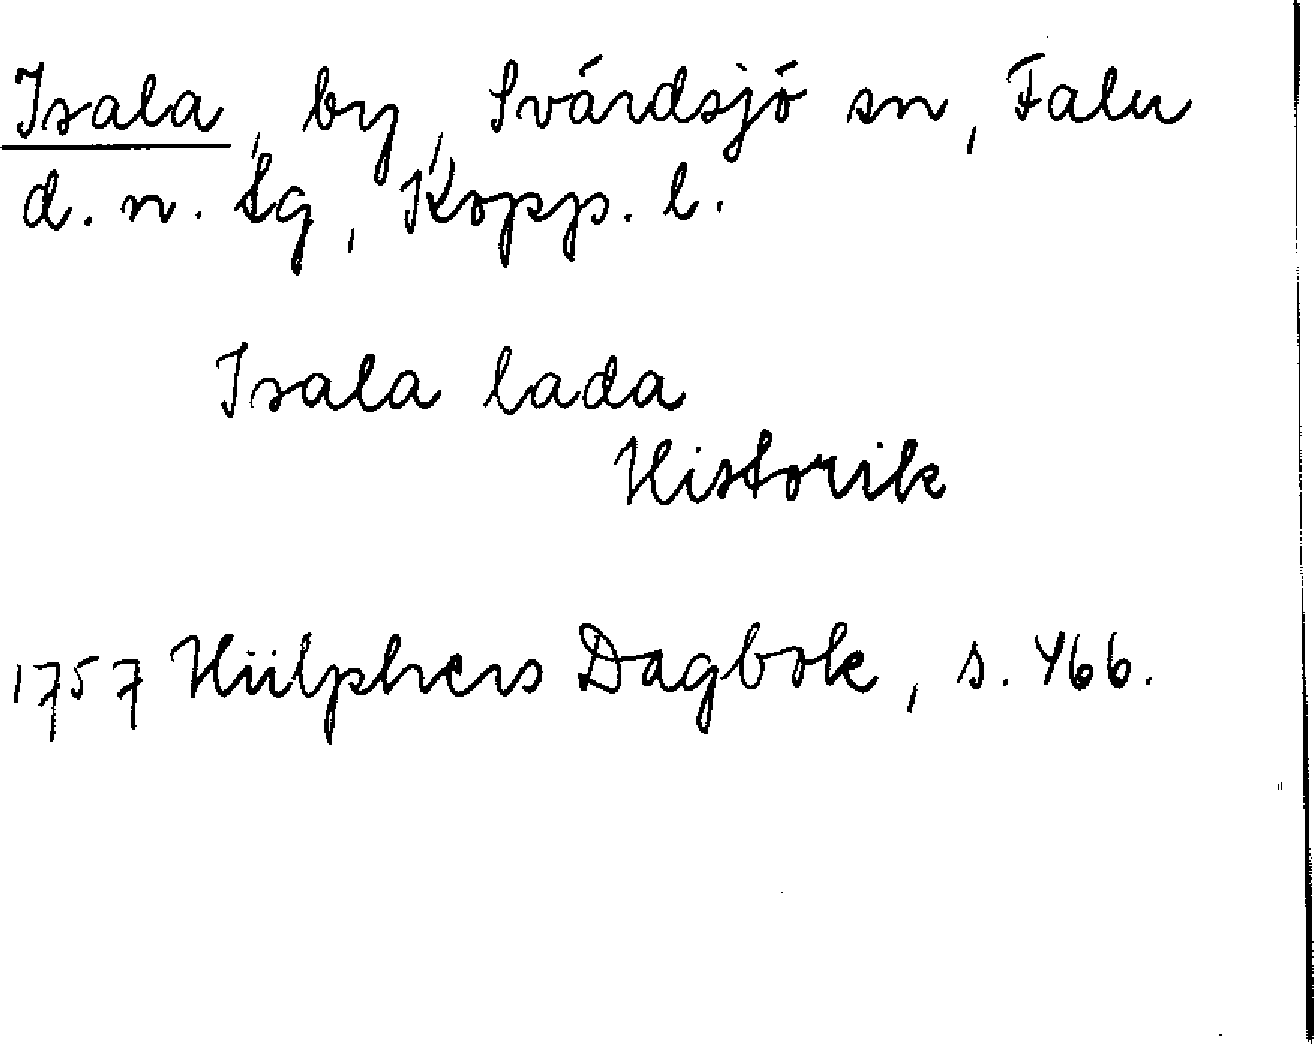 Isala, by, Svärdsjö sn, Falu
d. n. tg, Kopp. l.
Isala lada
Historik
1757 Hülphers Dagbok, s. 466.